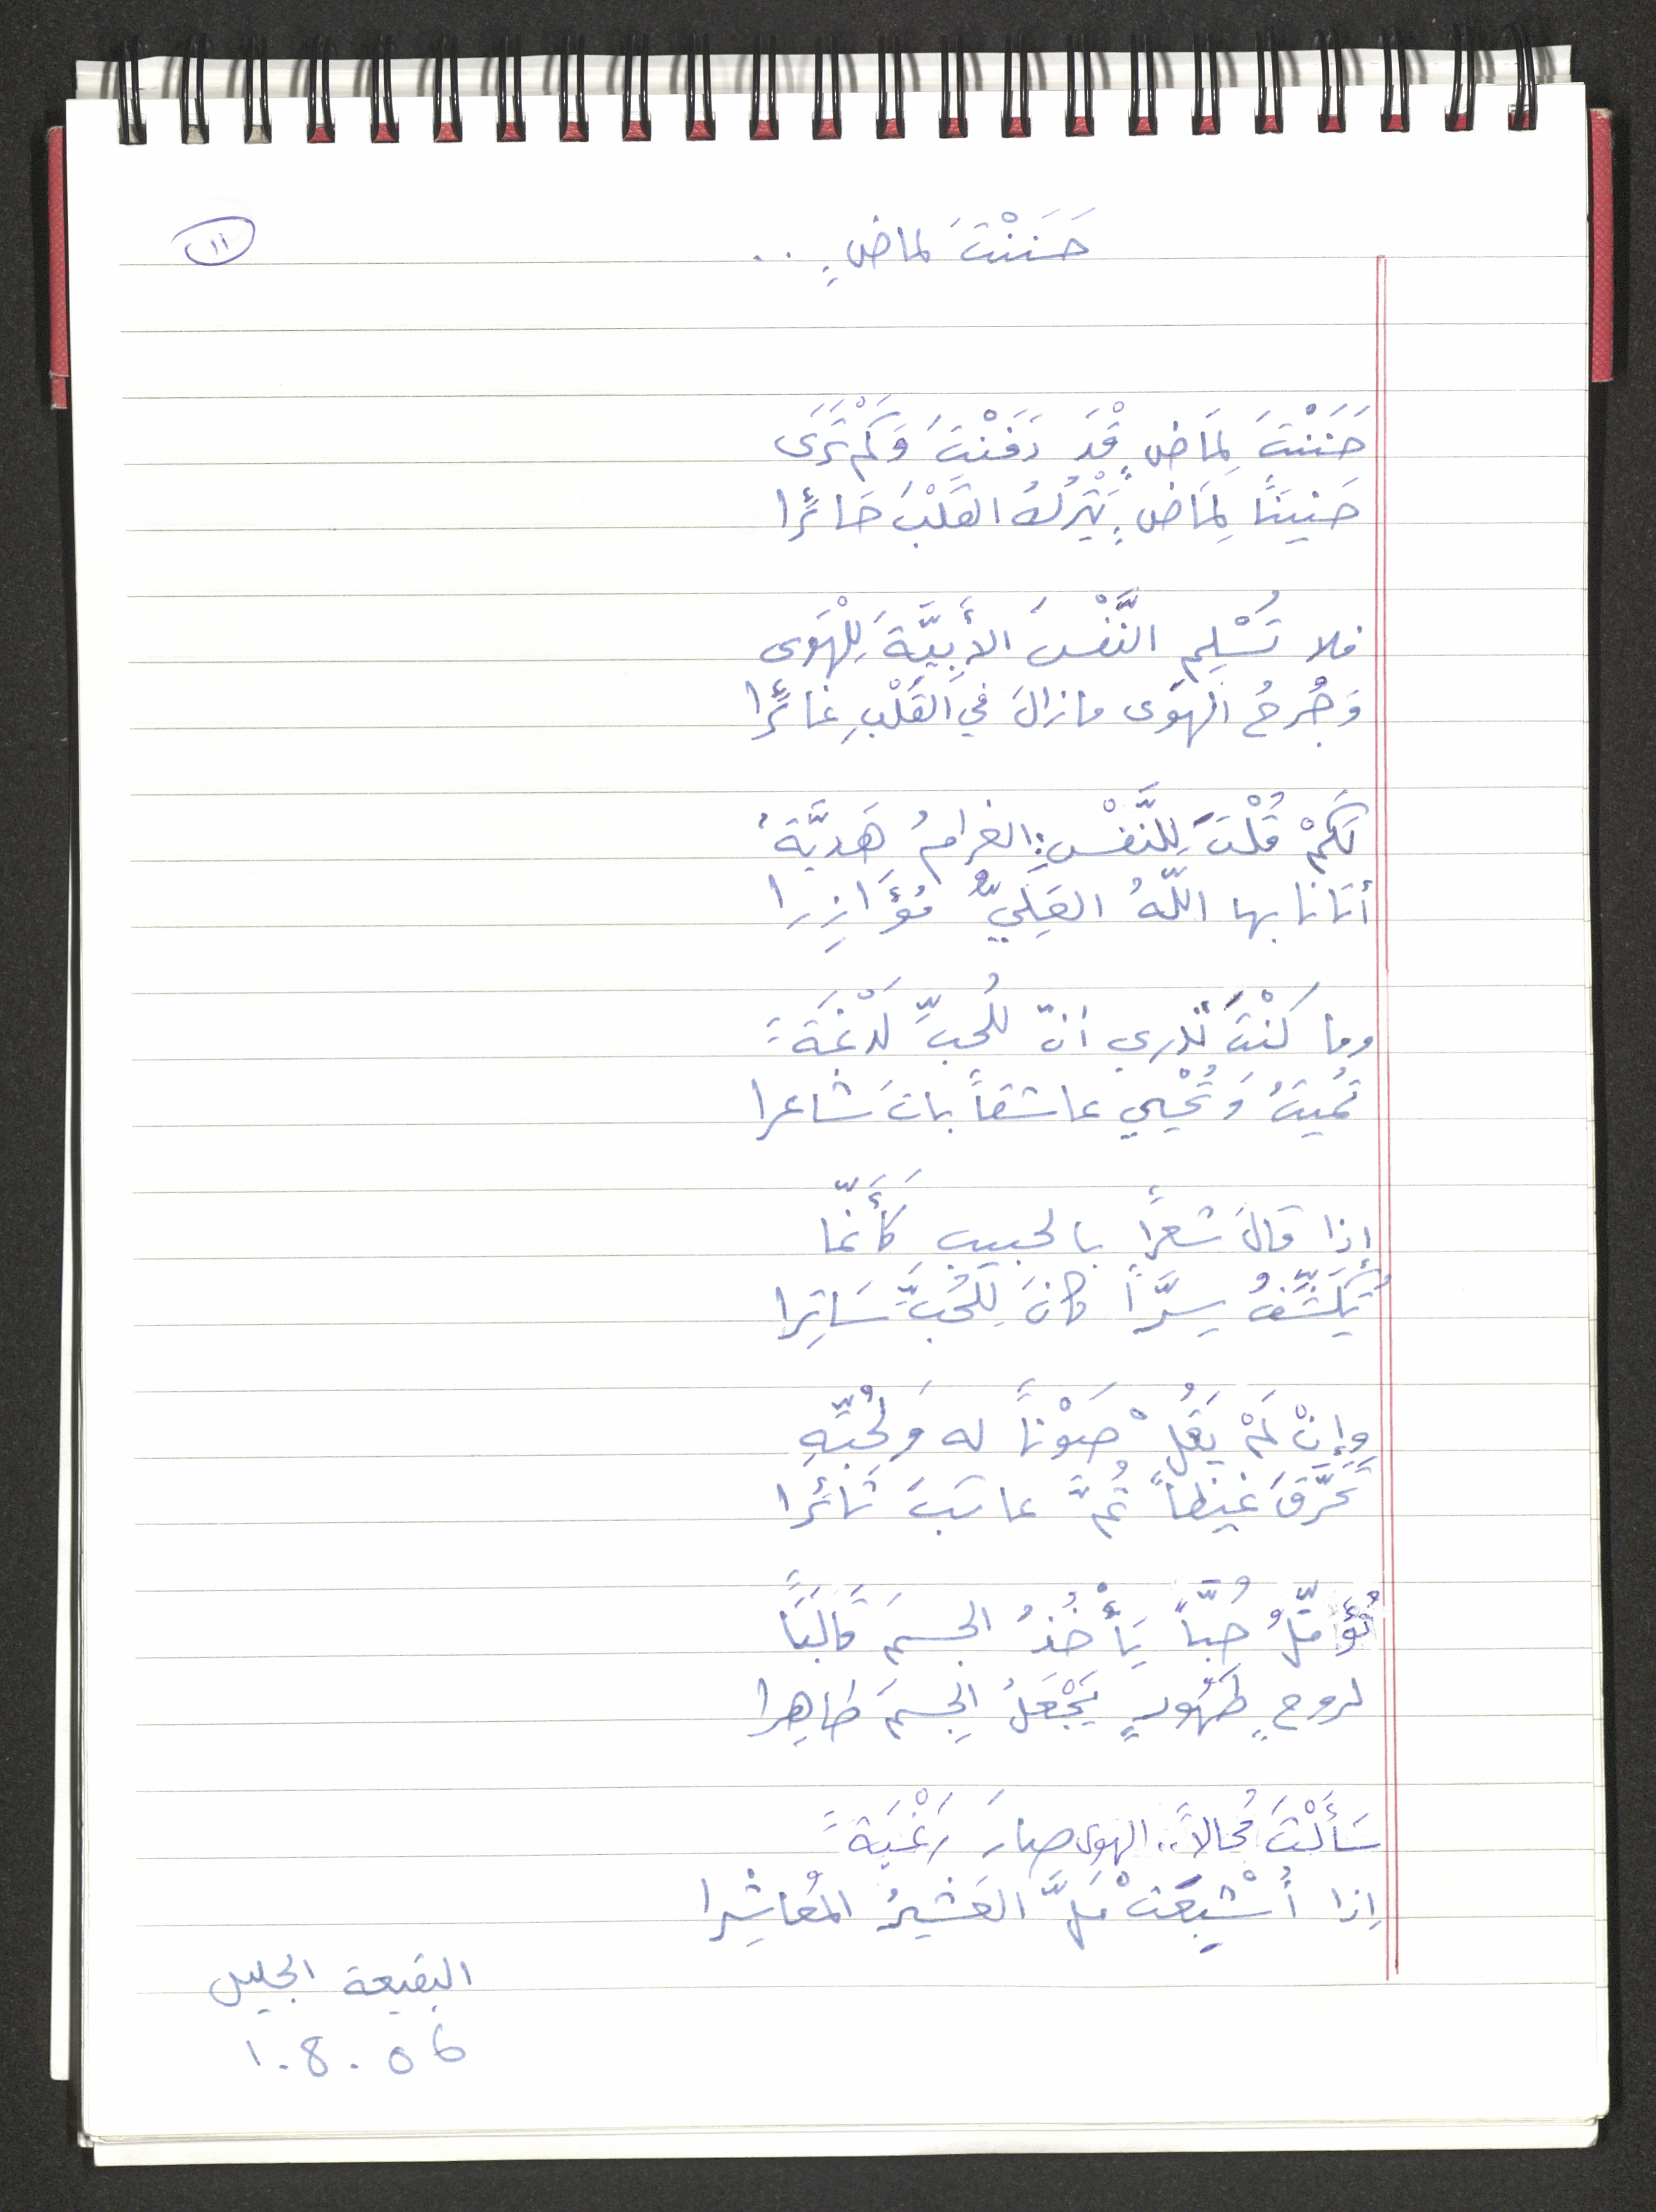 حَنَنْتَ لماضٍ ..
١١
حَنَنْتَ لِمَاضٍ قَدْ دَفَنْتَ وَكَمْ تَرَى
حَنِينًا لِمَاضٍ يَتْرُكُ القَلْبَ حَائِرًا
فلا تُسْلِمِ النَّفْسَ الأَبِيَّةَ لِلْهَوَى
وَجُرحُ الهَوَى مازالَ في القَلْبِ غائِرًا
لَكَمْ قُلْتَ لِلنَّفْسِ: الغرامُ هَديَّةٌ
أتَانا بها اللّهُ العَلِيُّ مُؤَازِرا
وما كُنْتَ تَدْري أنّ للحُبِّ لَدْغَةً
تُميتُ وَتُحْيي عاشقاً باتَ شاعرا
إذا قالَ شعرًا بالحبيبِ كَأَنَّما
يُكَشِّفُ سِرَّاً كانَ لِلحُبِّ سَاتِرا
وإِنْ لَمْ يَقُلْ صَوْناً له وَلِحُبِّهِ
تَحَرَّقَ غيظاً ثُمَّ عاتَبَ ثَائِرًا
تُؤَمِّلُ حُبّاً يَأْخُذُ الجسمَ قَالَبًا
لروحٍ طَهُورٍ يَجْعَلُ الجِسمَ طَاهِرا
سَأَلْتَ مُحالاً.. الهوى صارَ رَغْبَةً
إذا أُشْبِعَتْ مَلَّ العَشيرُ المُعَاشِرا
البقيعة الجليل
١.8.٥6